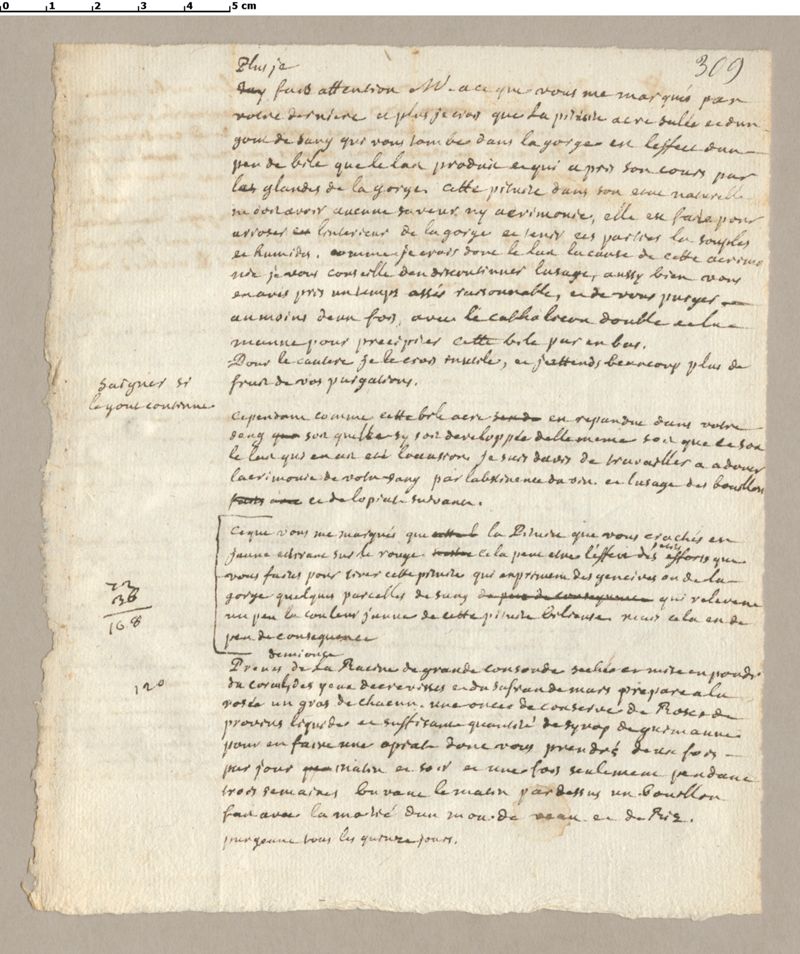 0 1 2 3 4 5 cm
309
Plus je
fais attention Mr. a ce que vous me marqués par
votre derniere et plus je crois que La pituite acre salée et dun
gout de sang qui vous tombe dans la gorge est leffect dun
peu de bile que le lait produit et qui a pris son cours par
les glandes de la gorge. Cette pituite dans son etat naturelle
ne doit avoir aucune saveur ny acrimonie, elle est faite pour
arroser linterieur de la gorge et tenir ces parties la souples
et humides. comme je crois donc le lait la cause de cette acrimo
nie je vous conseille den discontinuer lusage, aussy bien vous
en avés pris un temps assés raisonnable, et de vous purger
au moins deux fois, avec le catholicon double et la
manne pour precipiter cette bile par en bas.
Pour le cautere je le crois inutile, et jattends beaucoup plus de
fruit de vos purgations.
saigner si
le gout continue
Cependant comme cette bile acre est repandue dans votre
sang soit quelle sy soit developpée delle meme soit que ce soit
le lait qui en ait eté loccasion je suis davis de travailler a adoucir
lacrimonie de votre sang par labstinence du vin. et lusage des bouillons
faits avec et de lopiate suivante.
Ce que vous me marqués que cette la Pituite que vous crachés est
jaune etirant sur le rouge cela peut etre l'effect des petits efforts que
vous faites pour tirer cette pituite qui expriment des gencives ou de la
gorge quelques parcelles de sang de peu de consequence qui relevent
un peu la couleur jaune de cette pituite bilieuse mais cela est de
peu de consequence
72
36
108
demi once
Prenes de La Racine de grande consoude sechée et mise en poudre
du corail, des yeux decrevisses et du safran de mars preparé a la
rosée un gros de chacun. une once de conserve de Roses de
provins liquide et suffisante quantité de syrop de guimauve
pour en faire une opiate dont vous prendré deux fois
par jour matin et soir et une fois seulement pendant
trois semaines buvant le matin par dessus un bouillon
fait avec la moitié dun mou de veau et de Riz.
purgeant tous les quinze jours.
120